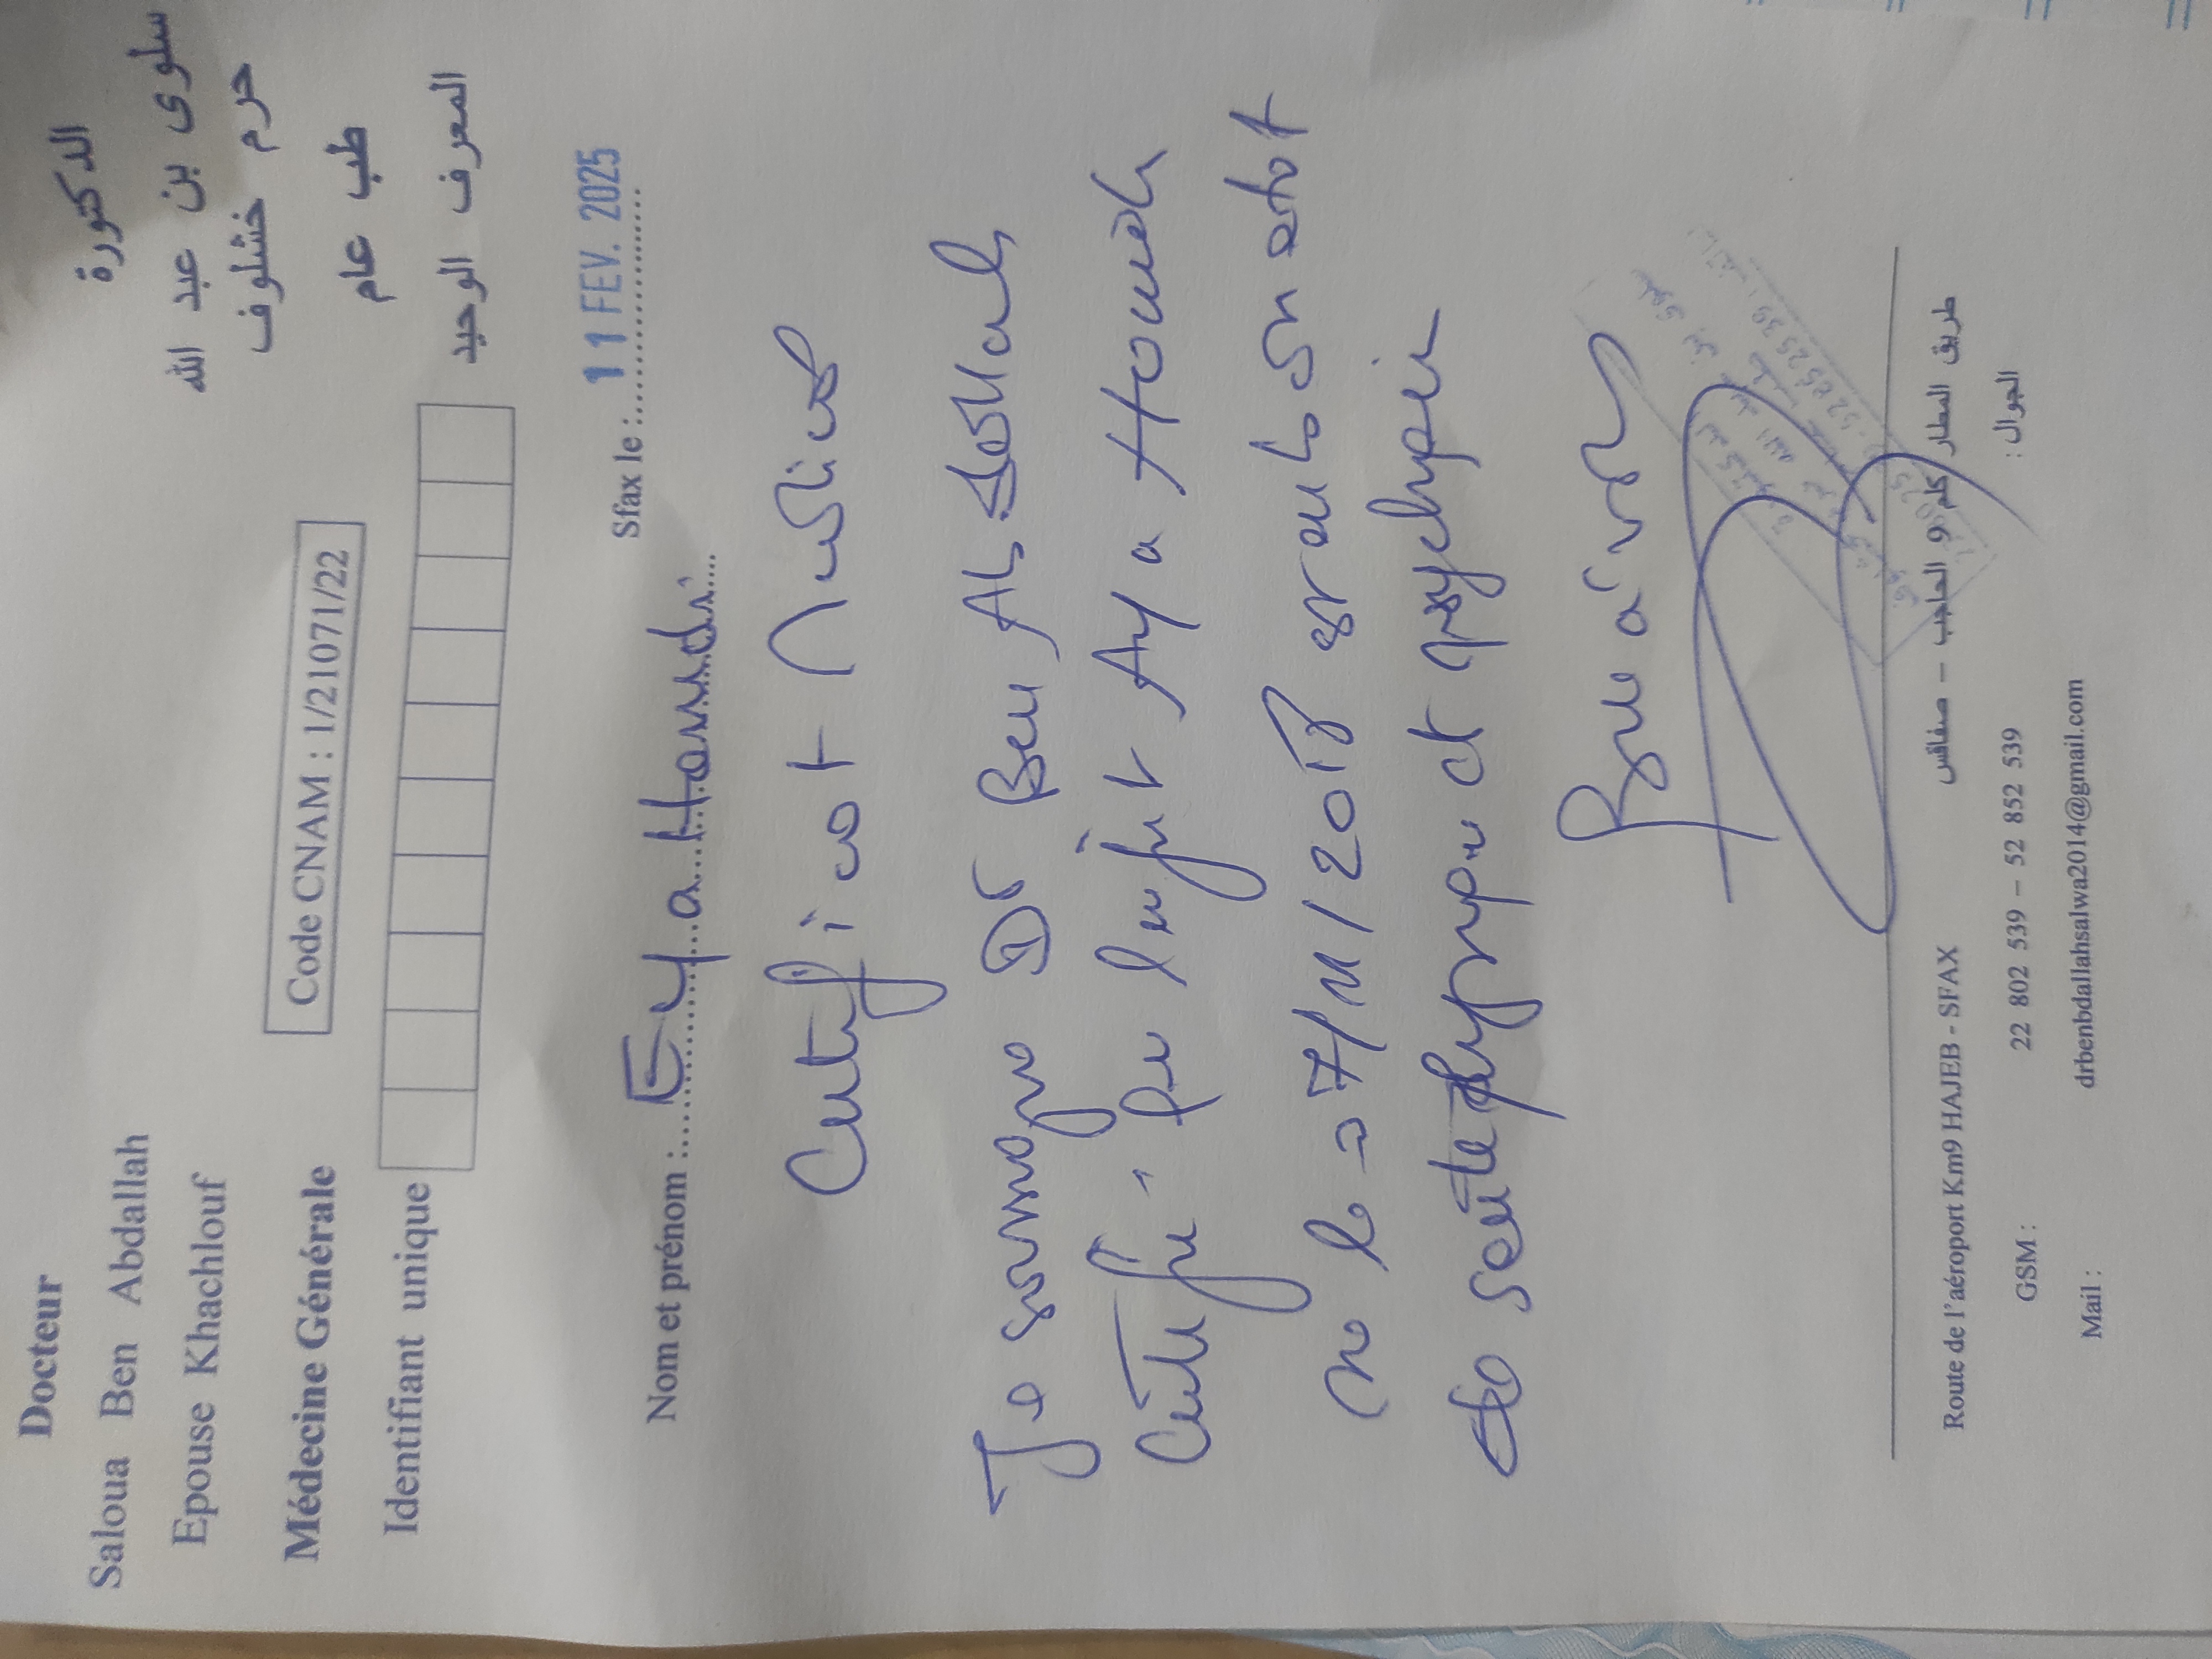 Docteur
Saloua Ben Abdallah
Epouse Khachlouf
Médecine Générale
الدكتورة
سلوى بن عبد الله
حرم خشلوف
طب عام
Code CNAM : 1/21071/22
Identifiant unique
المعرف الوحيد
Sfax le : 11 FEV. 2025
Nom et prénom : Eya Hamdi
Certificat Médical
Je soussigné Dr Ben Abdallah
Certifie que l'enfant Aya Hamdi
né le 27/11/2018 est en bon état
de santé physique et psychique
Bon à voir
Route de l'aéroport Km9 HAJEB - SFAX
طريق المطار كلم 9 الحاجب – صفاقس
GSM : 22 802 539 – 52 852 539 الجوال :
Mail : drbenbdallahsalwa2014@gmail.com